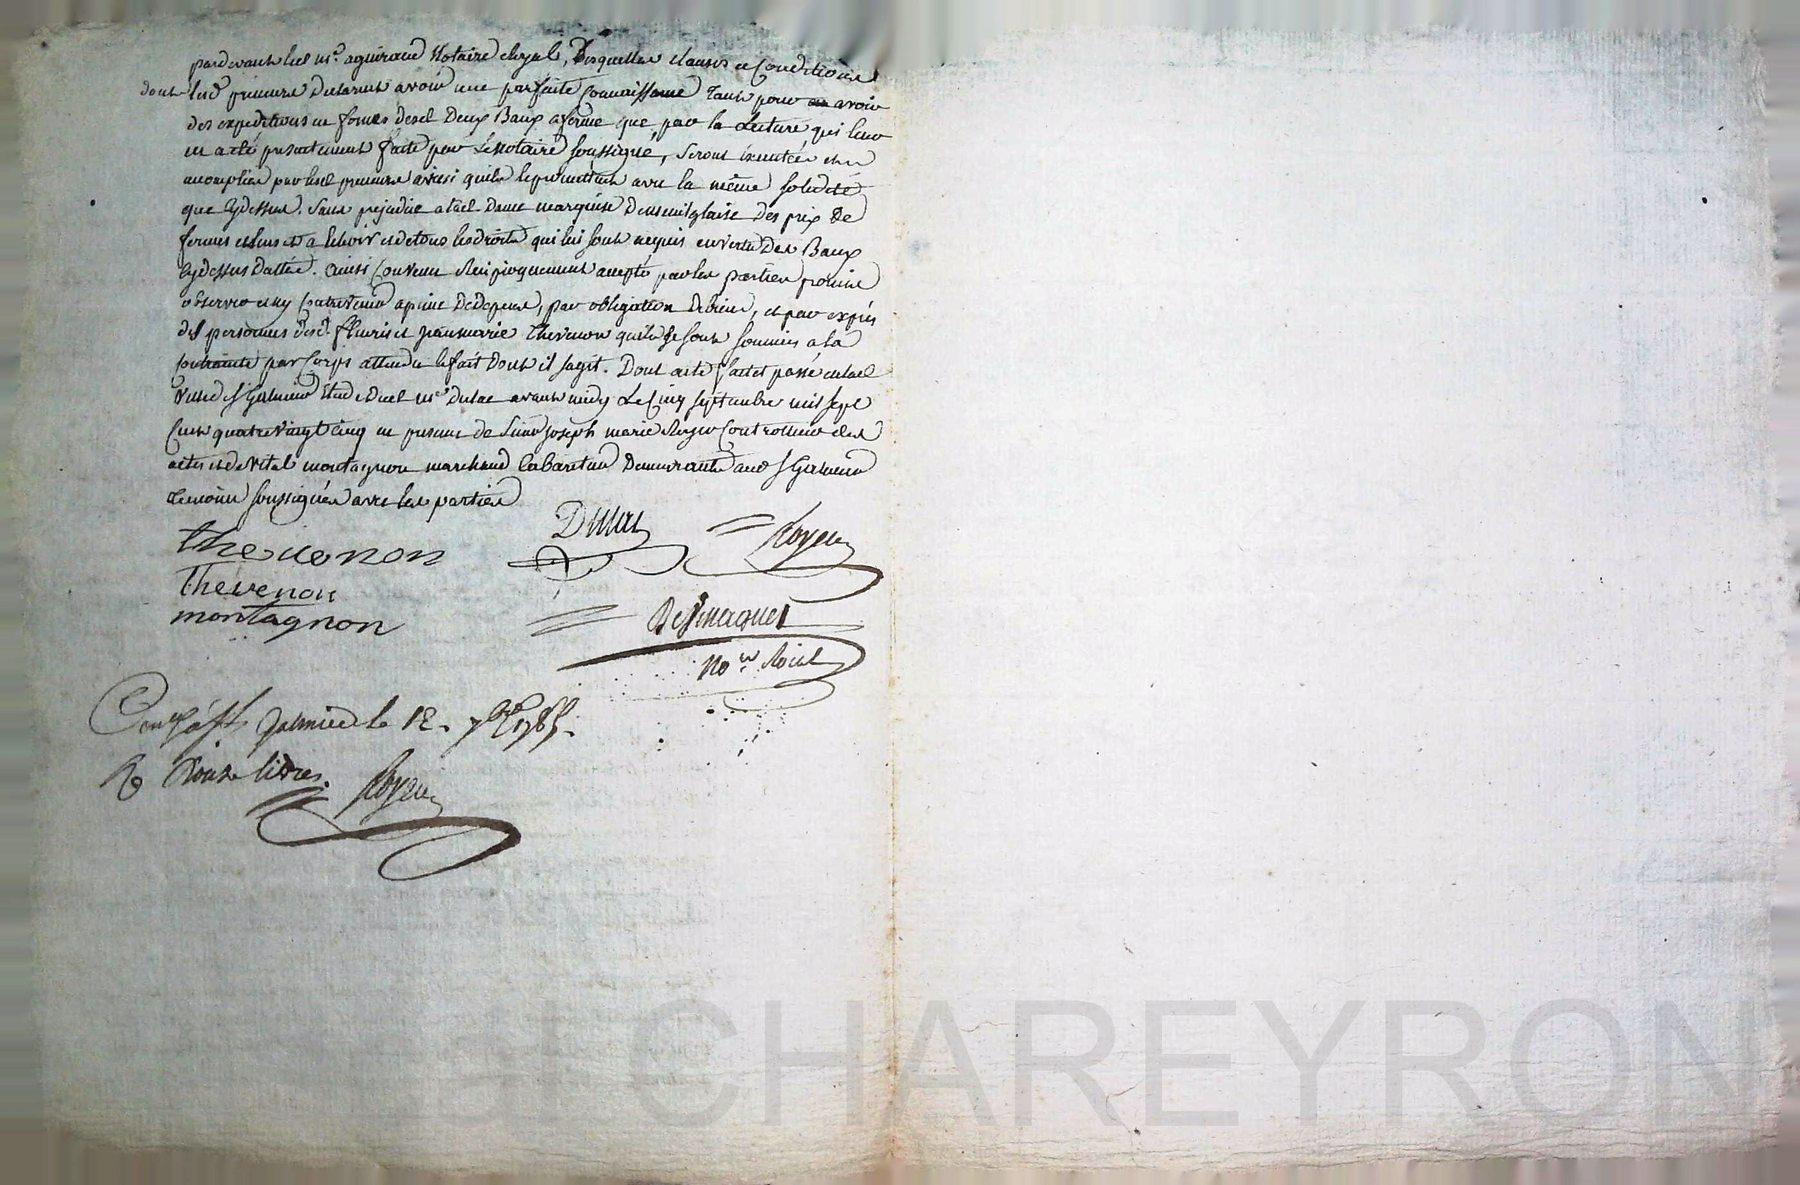 pardevant led m.e aguiraud Notaire Royal, Desquelles clauses et Conditions
dont lesd. preneurs Declarent avoir une parfaite Connaissance tant pour avoir
des expeditions en formes desd. Deux Baux a ferme que par la Lecture qui leur
en a eté presentement faite par Le Notaire soussigné, seront executées et
accomplies par lesd. preneurs ainsi quils le promettent avec la même solidité
que Cydessus. Sans prejudice a lad. Dame marquise des prix de
fermes et de tous les droits qui lui sont acquis en vertu Des Baux
Cydessus dattés. Ainsi Convenu Reciproquement accepté par les parties promis
observer et ny Contrevenir a peine De Depens, par obligation De biens, et par exprés
des personnes desd. fleuris et jeanmarie thevenon quils se sont soumis a la
Contrainte par Corps attendu le fait Dont il sagit. Dont acte fait et passé en lad.
Ville de St Galmier Etude dud. m.e Dulac avant midy Le Cinq septembre mil sept
Cent quatre vingt Cinq en presence de Sieur Joseph marie Royer Controlleur des
actes et de vital montagnon marchand Cabaretier Demeurants aud. St Galmier
temoins soussignés avec les parties
thevenon Dulac Royer
thevenon
montagnon
No.re Roial
Con.lé à St Galmier le 12. 7bre 1785.
R. douze livres. Royer
CHAREYRON